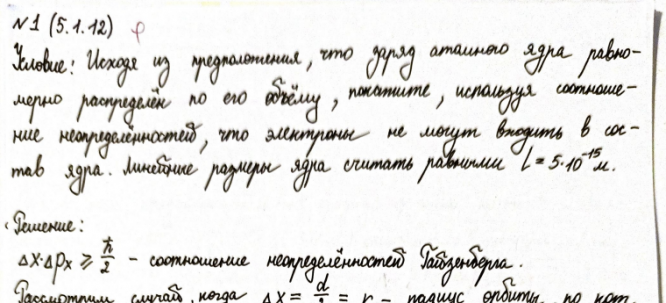 №1 (5.1.12) φ
Условие: Исходя из предположения, что заряд атомного ядра равно-
мерно распределён по его объёму, покажите, используя соотноше-
ние неопределённостей, что электроны не могут входить в сос-
тав ядра. Линейные размеры ядра считать равными l = 5·10⁻¹⁵ м.
Решение:
Δx·Δpₓ ≥ ħ/2 - соотношение неопределённостей Гайзенберга.
Рассмотрим случай, когда Δx = d/2 = r - радиус орбиты, по кот.